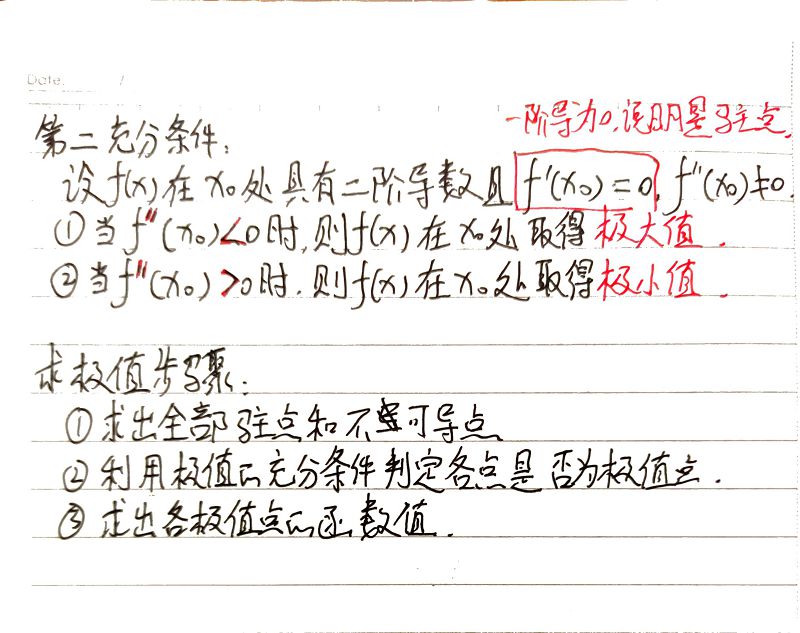 Date. /
一阶导为0,说明是驻点.
第二充分条件:
设f(x)在x₀处具有二阶导数且f'(x₀)=0,f''(x₀)≠0.
①当f''(x₀)<0时,则f(x)在x₀处取得极大值.
②当f''(x₀)>0时.则f(x)在x₀处取得极小值.
求极值步骤:
①求出全部驻点和不可导点
②利用极值的充分条件判定各点是否为极值点.
③求出各极值点的函数值.